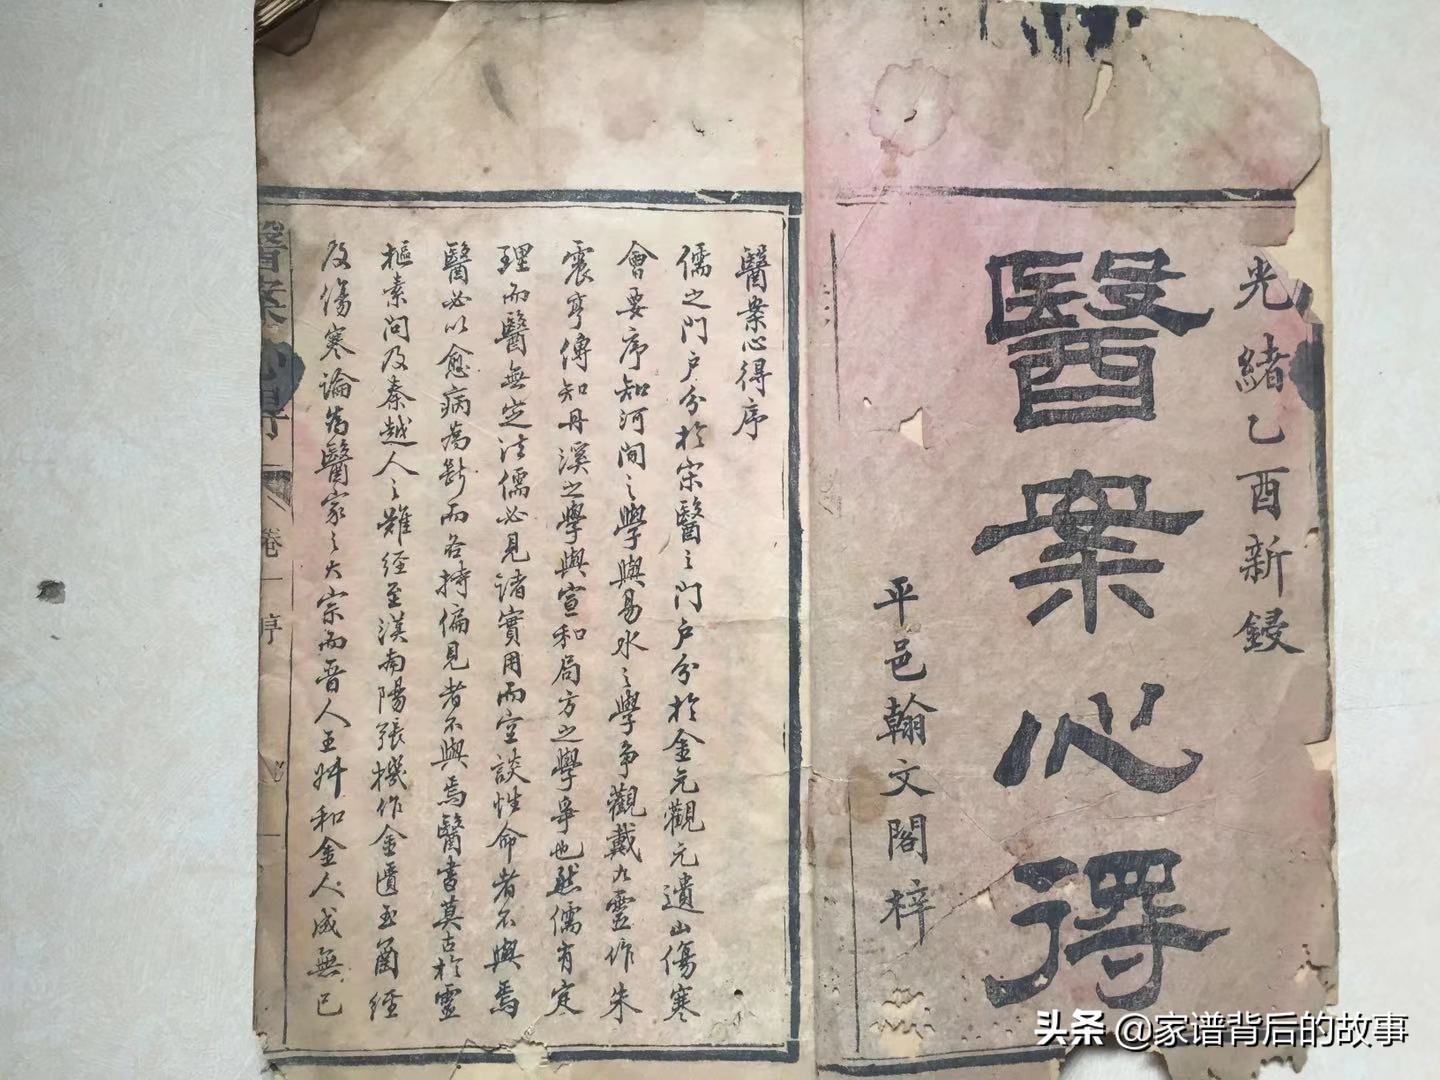 光緒乙酉新鋟
醫案心得
平邑翰文閣梓
醫案心得序
儒之門户分於宋醫之門户分於金元觀元遺山傷寒
會要序知河間之學與易水之學争觀戴九靈作朱
震亨傳知丹溪之學與宣和局方之學爭也然儒有定
理而醫無定法儒必見諸實用而空談性命者不與焉
醫必以愈病為斷而各持偏見者不與焉醫書莫古於靈
樞素問及秦越人之難經至漢南陽張機作金匱玉函經
及傷寒論為醫家之大宗而晉人王叔和金人成無已
醫案心得
卷一
序
头条 @家谱背后的故事